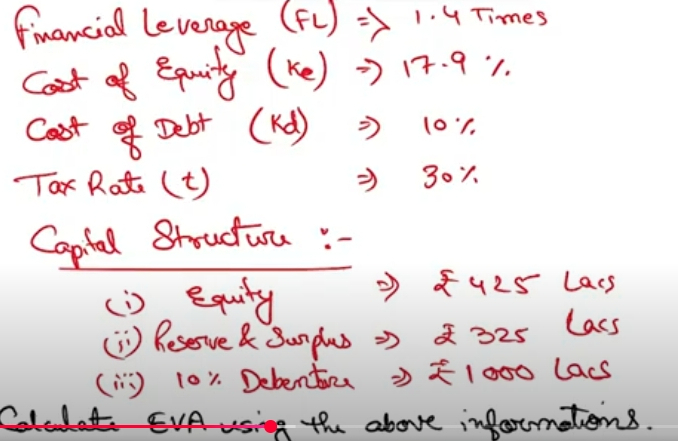 Financial Leverage (FL) ⇒ 1.4 Times
Cost of Equity (Ke) ⇒ 17.9 %.
Cost of Debt (Kd) ⇒ 10 %.
Tax Rate (t) ⇒ 30 %.
Capital Structure :-
(i) Equity ⇒ ₹ 425 Lacs
(ii) Reserve & Surplus ⇒ ₹ 325 Lacs
(iii) 10 % Debenture ⇒ ₹ 1000 Lacs
Calculate EVA using the above informations.